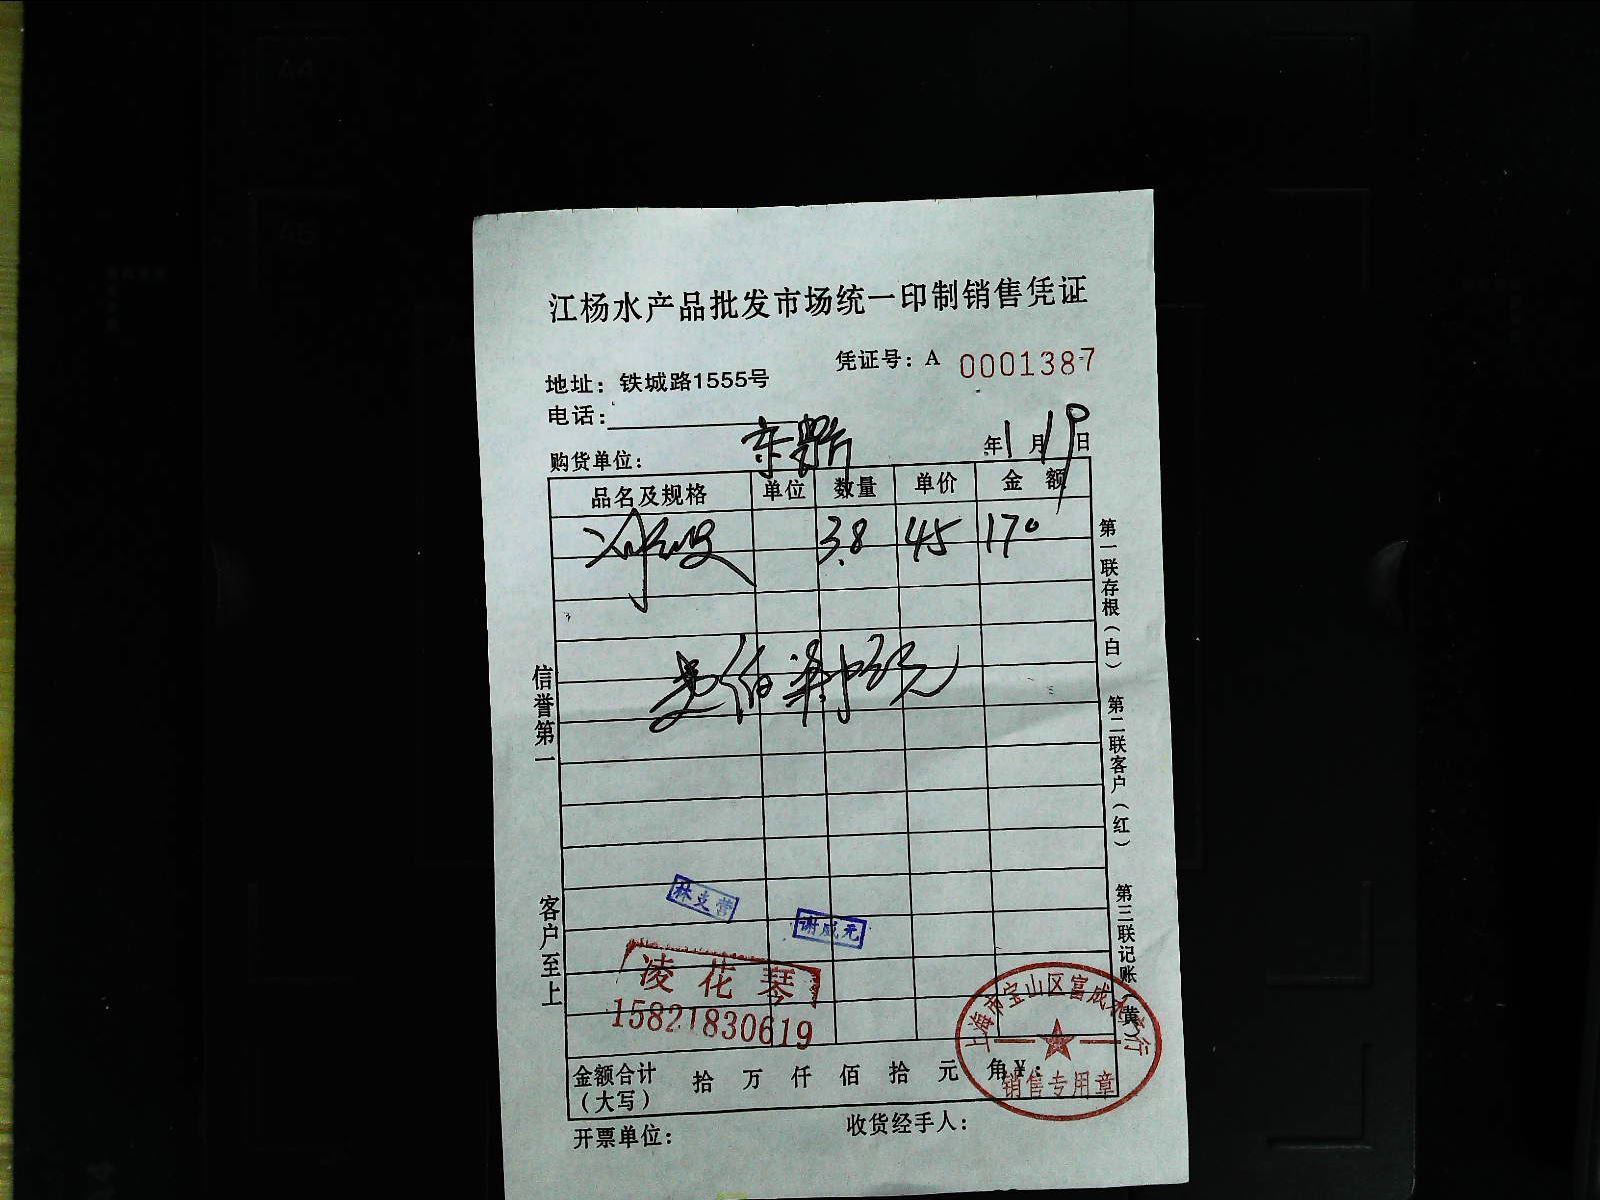 江杨水产品批发市场统一印制销售凭证
凭证号：A 0001387
地址：铁城路1555号
电话：
购货单位： 年1月19日
品名及规格 单位 数量 单价 金额
3.8 45 170
元
信誉第一
客户至上
第一联存根（白） 第二联客户（红） 第三联记账（黄）
谢成元
凌花琴
15821830619
上海市宝山区富成水产行
销售专用章
金额合计（大写） 拾 万 仟 佰 拾 元 角 ¥：
开票单位： 收货经手人：